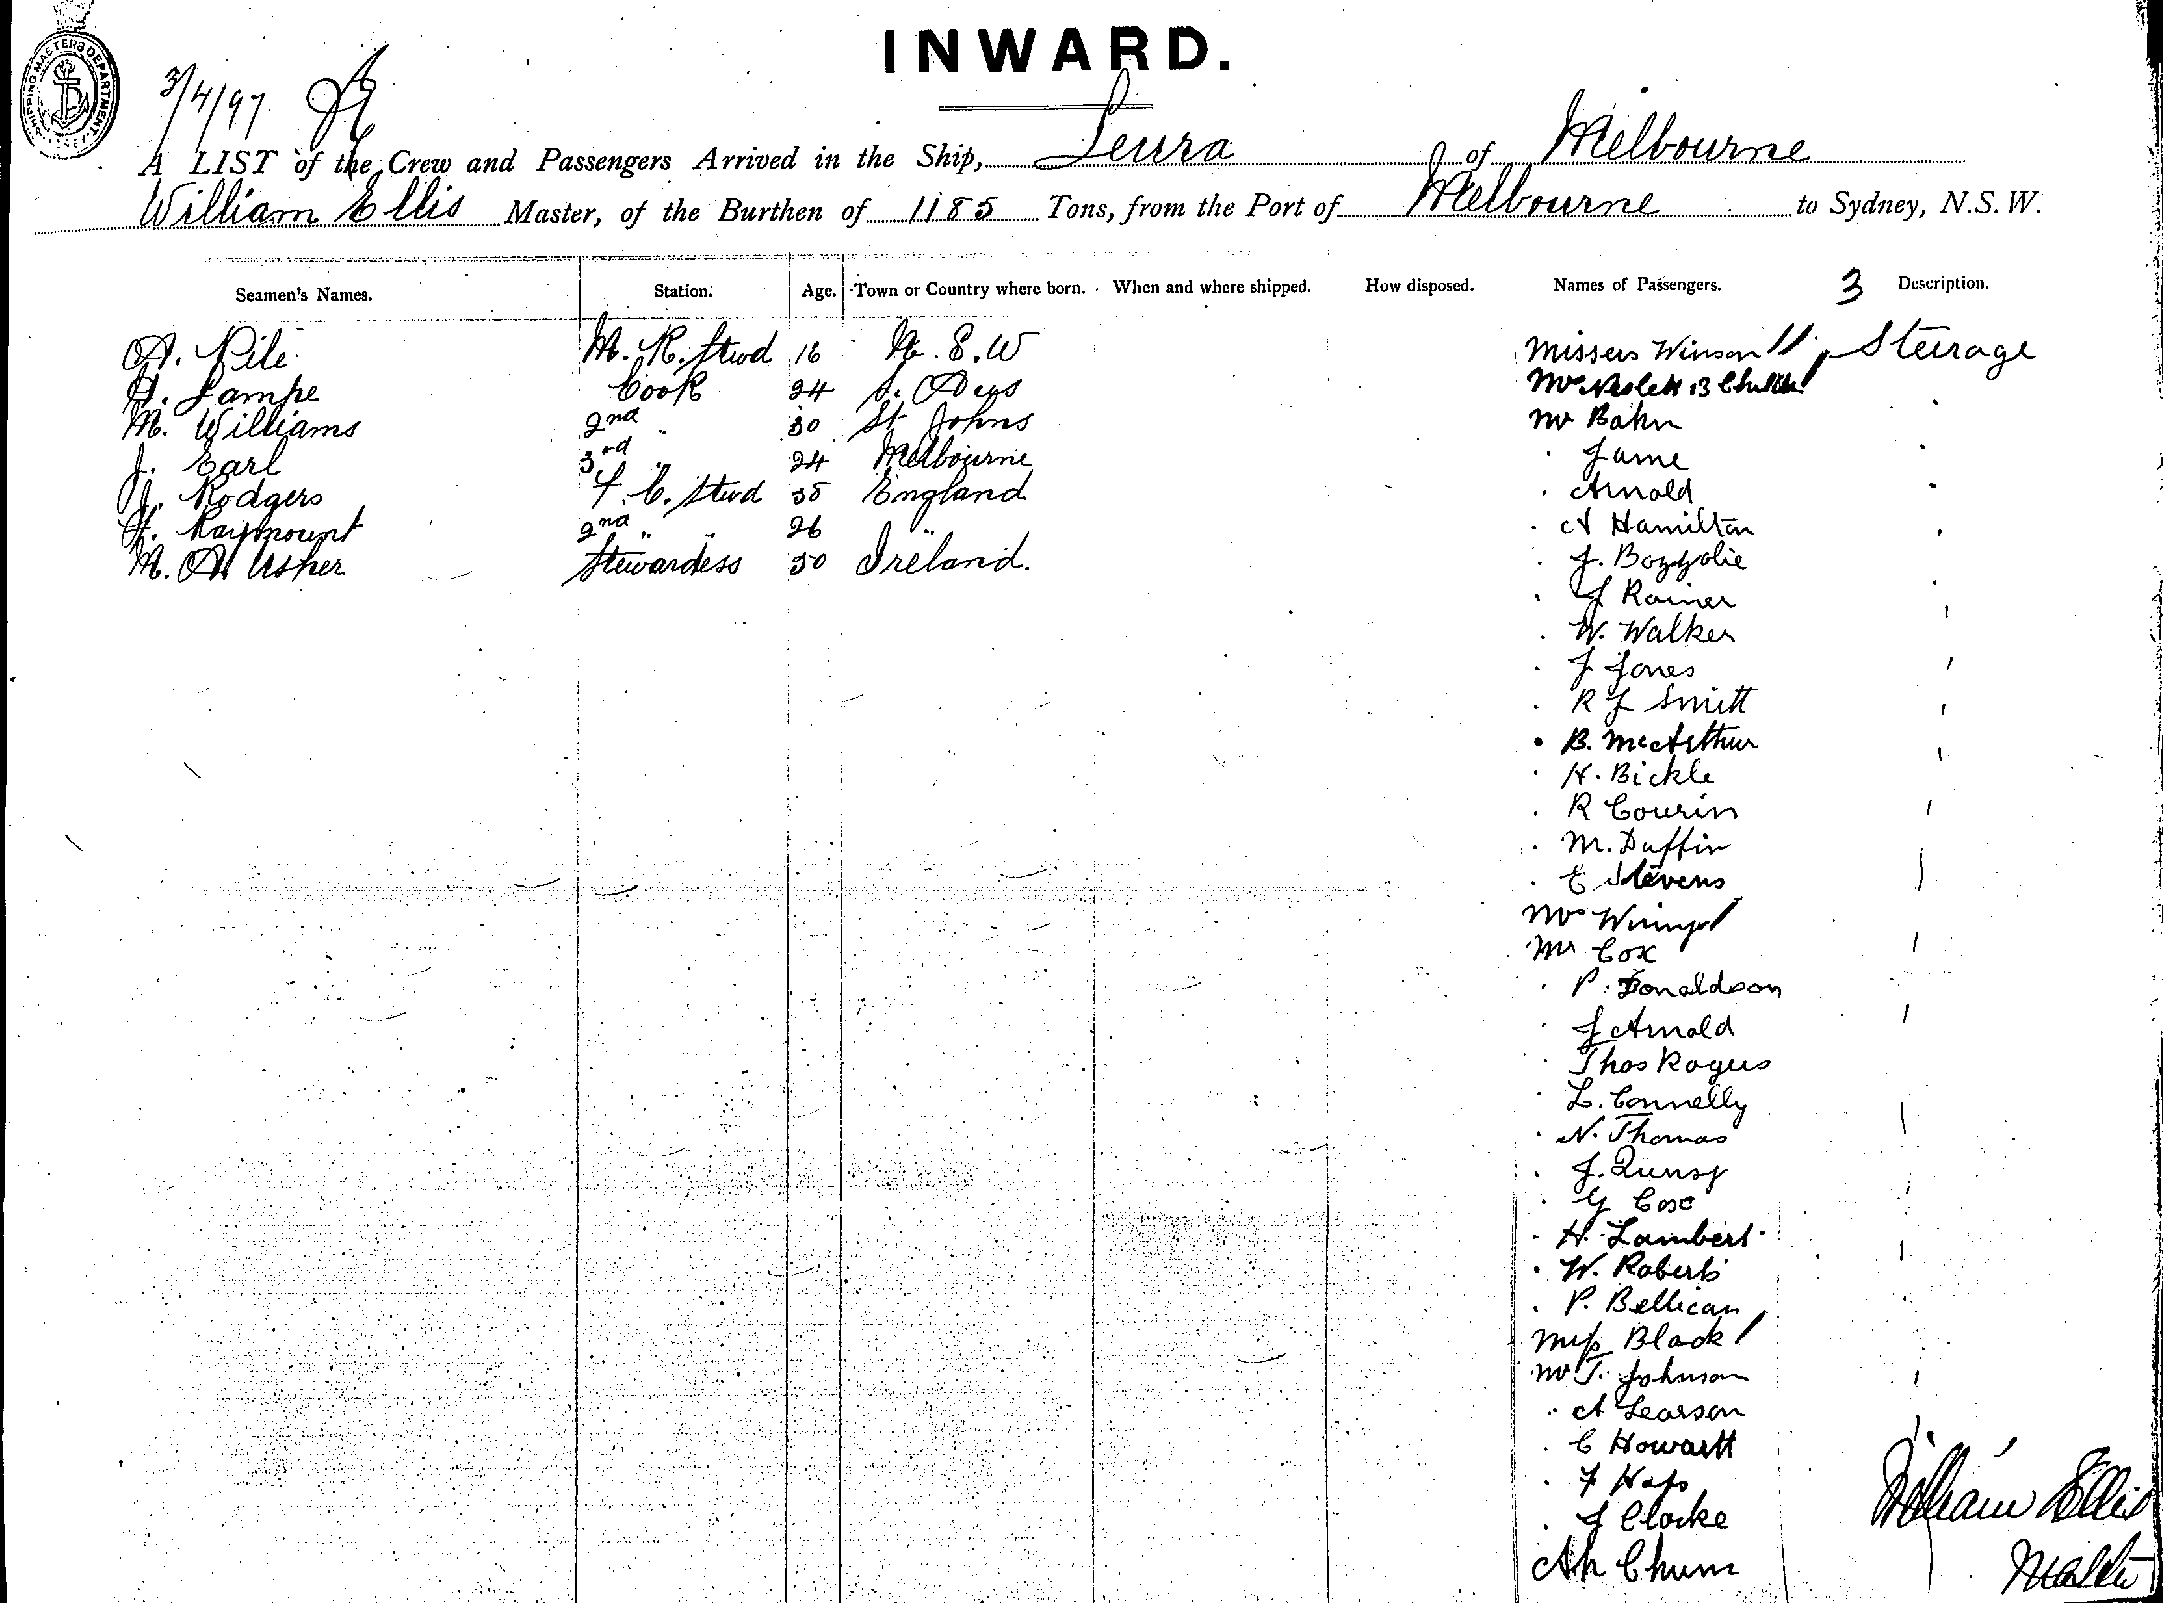 INWARD.
SHIPPING MASTERS DEPARTMENT
3/4/97
A LIST of the Crew and Passengers Arrived in the Ship, Leura of Melbourne
William Ellis Master, of the Burthen of 1185 Tons, from the Port of Melbourne to Sydney, N.S.W.
Seamen's Names. Station. Age. Town or Country where born. When and where shipped. How disposed. Names of Passengers. 3 Description.
A. Pile M. R. Stwd 16 N. S. W
H. Lampe Cook 24
M. Williams 2nd " 30 St Johns
J. Earl 3rd " 24 Melbourne
J. Rodgers F. C. Stwd 38 England
F. Raymount 2nd " " 26 "
M. A Usher Stewardess 50 Ireland.
Missers Winson Steirage
Mrs
Mr Bakn
" Jame
" Arnold
" A Hamilton
" J. Bozzolie
" J Rainer
" W. Walker
" J Jones
" R J Smitt
" B. McArthur
" H. Bickle
" R Courin
" M. Duffin
" C Stevens
Mrs
Mr Cox
" P. Donaldson
" J Arnold
" Thos Rogers
" L. Connelly
" N. Thomas
" J. Qunsy
" G Cox
" H. Lambert
" W. Roberts
" P. Bellican
Miss Black
Mr T. Johnson
" A Learson
" C Howartt
" F Hass
" J Clarke
Ah Chum
William Ellis
Master